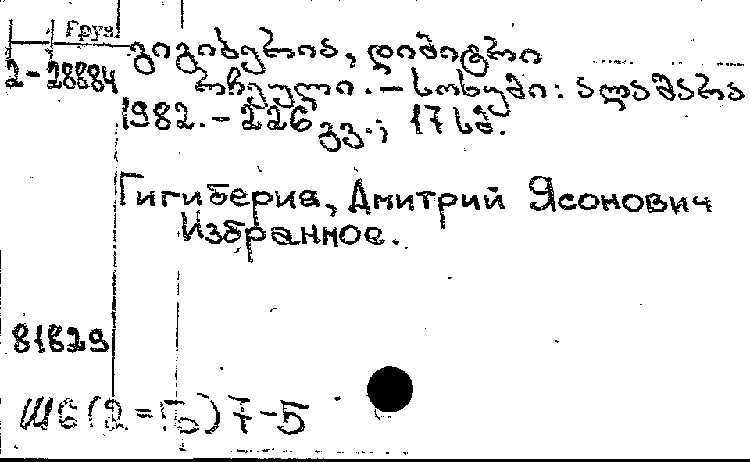 Груз
2-28884
გიგიბერია, დიმიტრი
რჩეული. – სოხუმი: ალაშარა
1982. – 226 გვ.; 17 სმ.
Гигиберия, Дмитрий Ясонович
Избранное.
81829
Ш6(2=Г)7-5